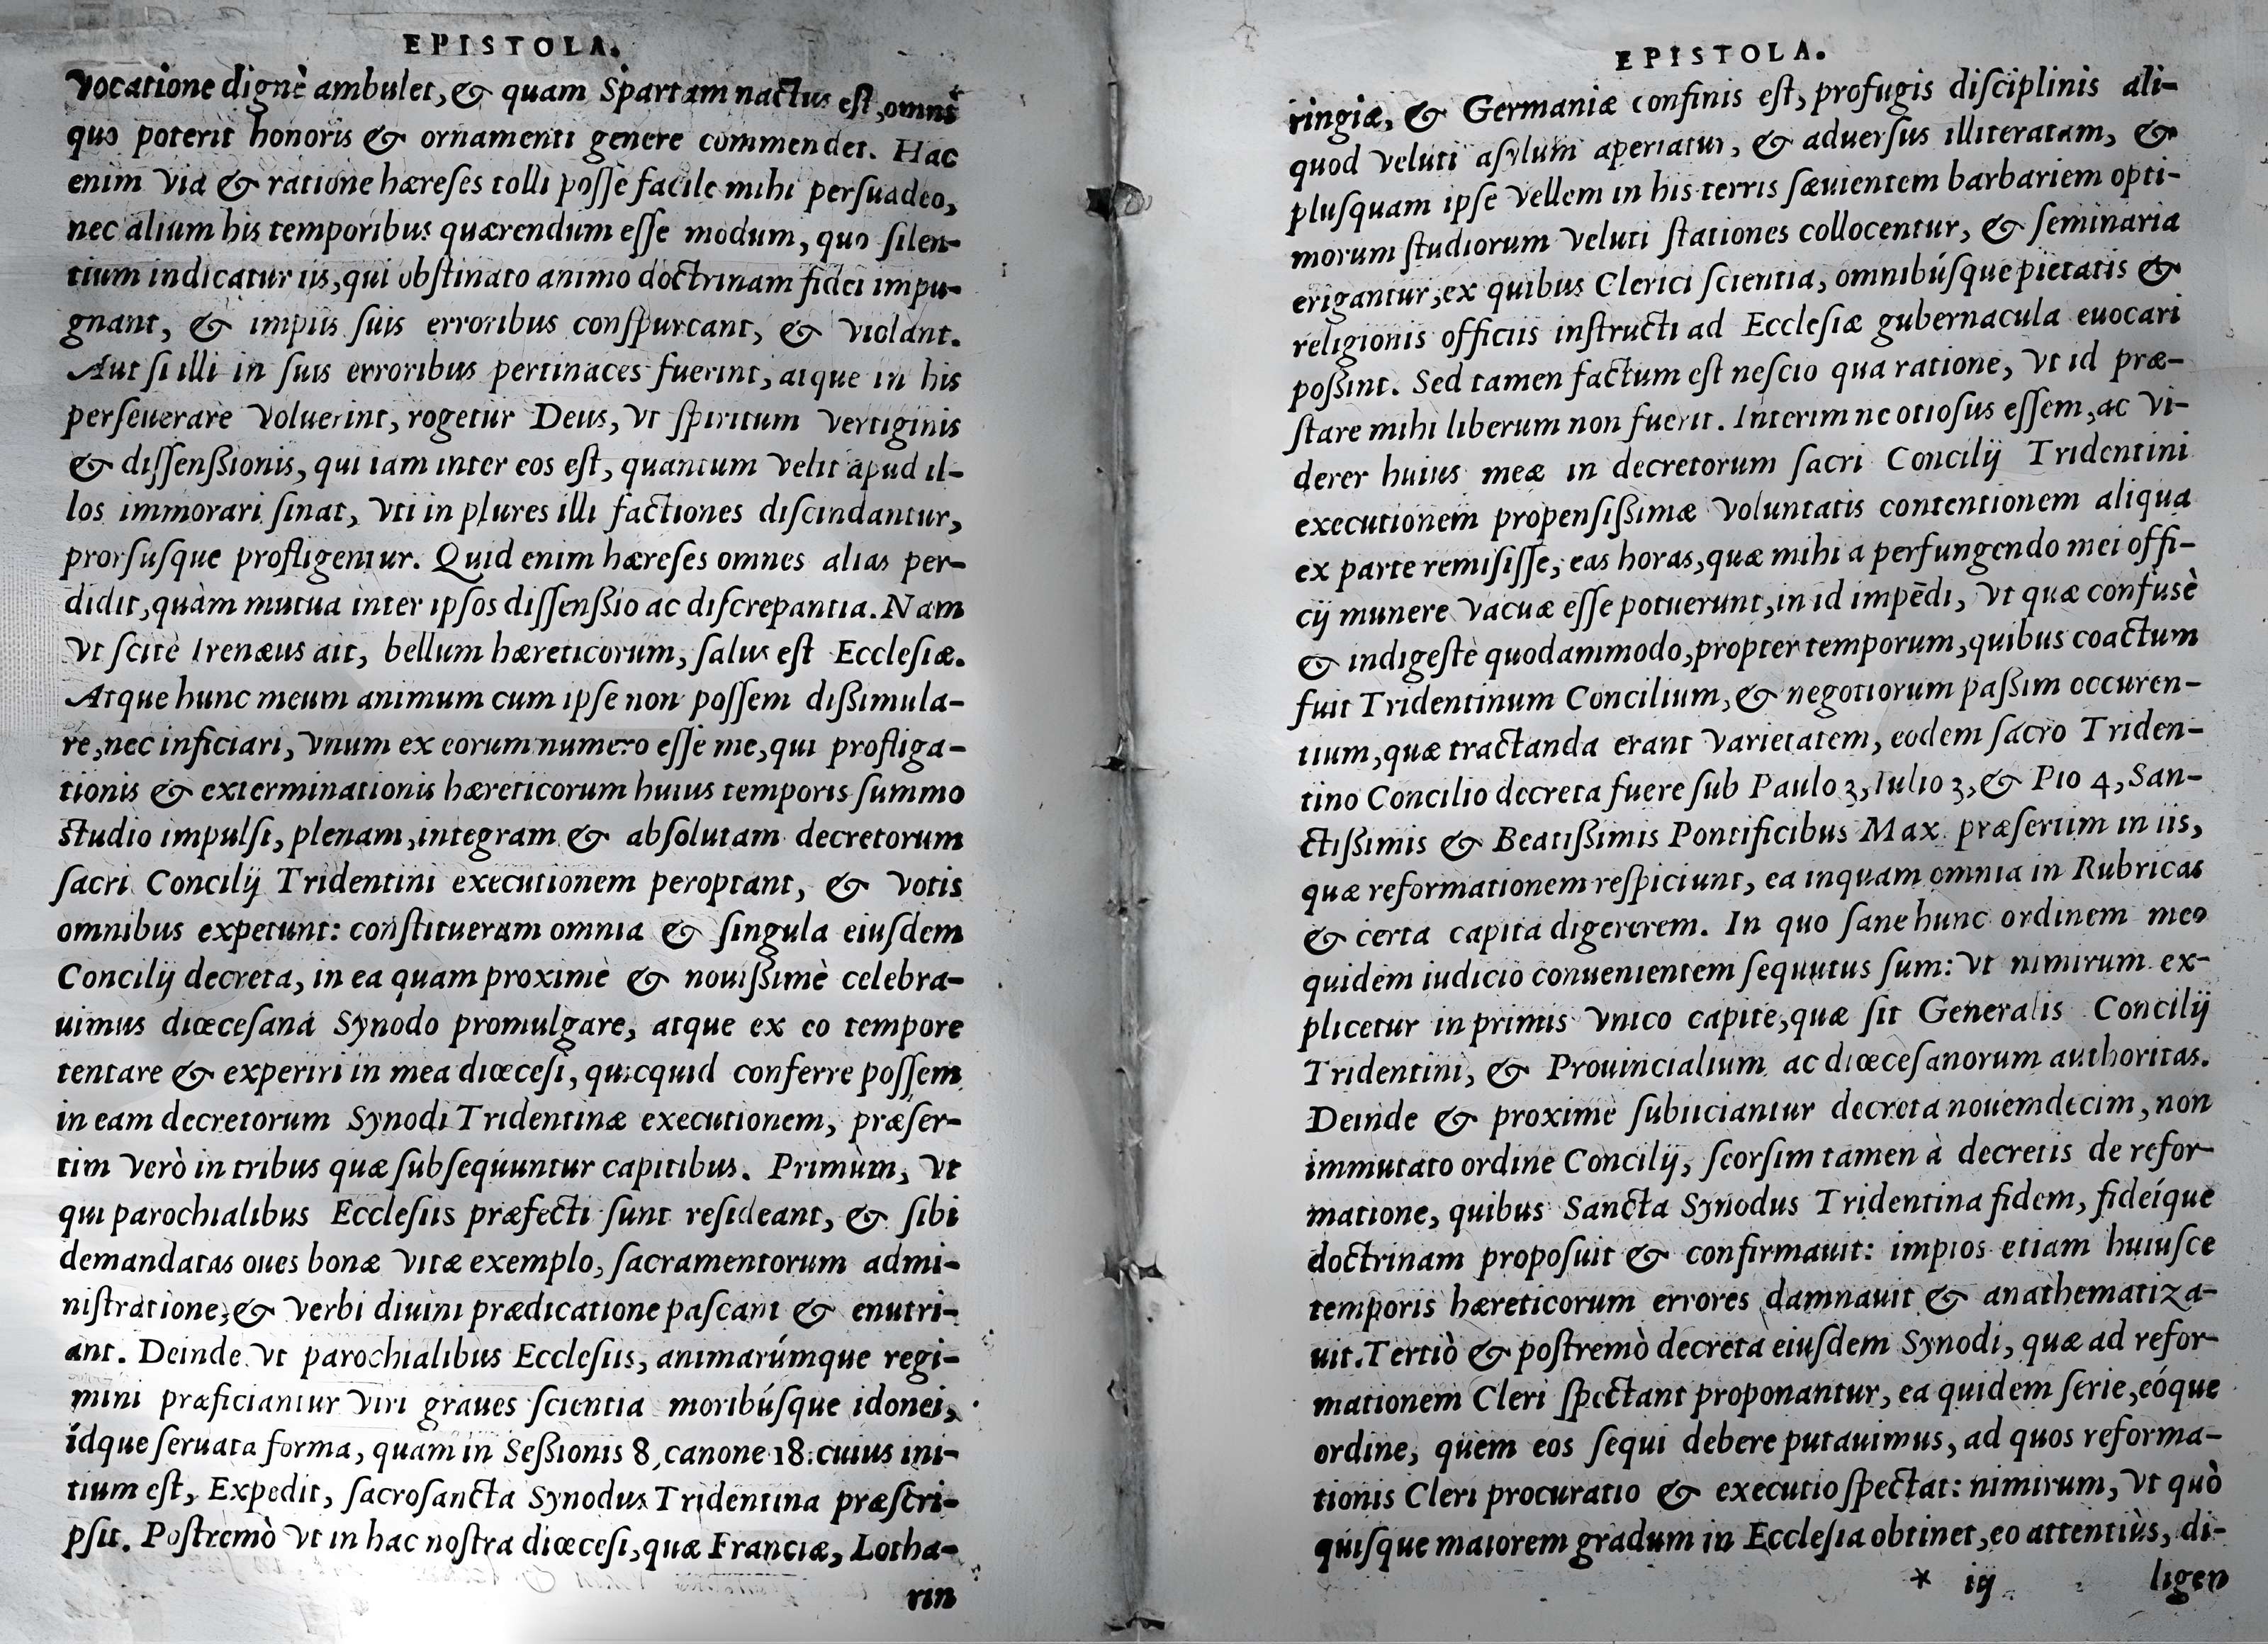 EPISTOLA.
vocatione dignè ambulet, & quam Spartam nactus est, omni
quo poterit honoris & ornamenti genere commendet. Hac
enim via & ratione hæreses tolli posse facile mihi persuadeo,
nec alium his temporibus quærendum esse modum, quo silen-
tium indicatur iis, qui obstinato animo doctrinam fidei impu-
gnant, & impiis suis erroribus conspurcant, & violant.
Aut si illi in suis erroribus pertinaces fuerint, atque in his
perseuerare voluerint, rogetur Deus, vt spiritum vertiginis
& dissensionis, qui iam inter eos est, quantum velit apud il-
los immorari sinat, vti in plures illi factiones discindantur,
prorsusque profligentur. Quid enim hæreses omnes alias per-
didit, quàm mutua inter ipsos dissensio ac discrepantia. Nam
vt scitè Irenæus ait, bellum hæreticorum, salus est Ecclesiæ.
Atque hunc meum animum cum ipse non possem dissimula-
re, nec inficiari, vnum ex eorum numero esse me, qui profliga-
tionis & exterminationis hæreticorum huius temporis summo
studio impulsi, plenam, integram & absolutam decretorum
sacri Concilij Tridentini executionem peroptant, & votis
omnibus expetunt: constitueram omnia & singula eiusdem
Concilij decreta, in ea quam proximè & nouissimè celebra-
uimus diœcesana Synodo promulgare, atque ex eo tempore
tentare & experiri in mea diœcesi, quicquid conferre possem
in eam decretorum Synodi Tridentinæ executionem, præser-
tim verò in tribus quæ subsequuntur capitibus. Primùm, vt
qui parochialibus Ecclesiis præfecti sunt resideant, & sibi
demandatas oues bonæ vitæ exemplo, sacramentorum admi-
nistratione, & verbi diuini prædicatione pascant & enutri-
ant. Deinde vt parochialibus Ecclesiis, animarúmque regi-
mini præficiantur viri graues scientia moribúsque idonei,
ídque seruata forma, quam in Sessionis 8, canone 18. cuius ini-
tium est, Expedit, sacrosancta Synodus Tridentina præscri-
psit. Postremò vt in hac nostra diœcesi, quæ Franciæ, Lotha-
rin
EPISTOLA.
ringiæ, & Germaniæ confinis est, profugis disciplinis ali-
quod veluti asylum aperiatur, & aduersus illiteratam, &
plusquam ipse vellem in his terris sæuientem barbariem opti-
morum studiorum veluti stationes collocentur, & seminaria
erigantur, ex quibus Clerici scientia, omnibúsque pietatis &
religionis officiis instructi ad Ecclesiæ gubernacula euocari
possint. Sed tamen factum est nescio qua ratione, vt id præ-
stare mihi liberum non fuerit. Interim ne otiosus essem, ac vi-
derer huius meæ in decretorum sacri Concilij Tridentini
executionem propensissimæ voluntatis contentionem aliqua
ex parte remisisse, eas horas, quæ mihi a perfungendo mei offi-
cij munere vacuæ esse potuerunt, in id impēdi, vt quæ confusè
& indigestè quodammodo, propter temporum, quibus coactum
fuit Tridentinum Concilium, & negotiorum passim occuren-
tium, quæ tractanda erant varietatem, eodem sacro Triden-
tino Concilio decreta fuere sub Paulo 3, Iulio 3, & Pio 4, San-
ctissimis & Beatissimis Pontificibus Max. præsertim in iis,
quæ reformationem respiciunt, ea inquam omnia in Rubricas
& certa capita digererem. In quo sane hunc ordinem meo
quidem iudicio conuenientem sequutus sum: vt nimirum ex-
plicetur in primis vnico capite, quæ sit Generalis Concilij
Tridentini, & Prouincialium ac diœcesanorum authoritas.
Deinde & proximè subiiciantur decreta nouemdecim, non
immutato ordine Concilij, seorsim tamen à decretis de refor-
matione, quibus Sancta Synodus Tridentina fidem, fideíque
doctrinam proposuit & confirmauit: impios etiam huiusce
temporis hæreticorum errores damnauit & anathematiza-
uit. Tertiò & postremò decreta eiusdem Synodi, quæ ad refor-
mationem Cleri spectant proponantur, ea quidem serie, eóque
ordine, quem eos sequi debere putauimus, ad quos reforma-
tionis Cleri procuratio & executio spectat: nimirum, vt quò
quisque maiorem gradum in Ecclesia obtinet, eo attentiùs, di-
* iij ligen